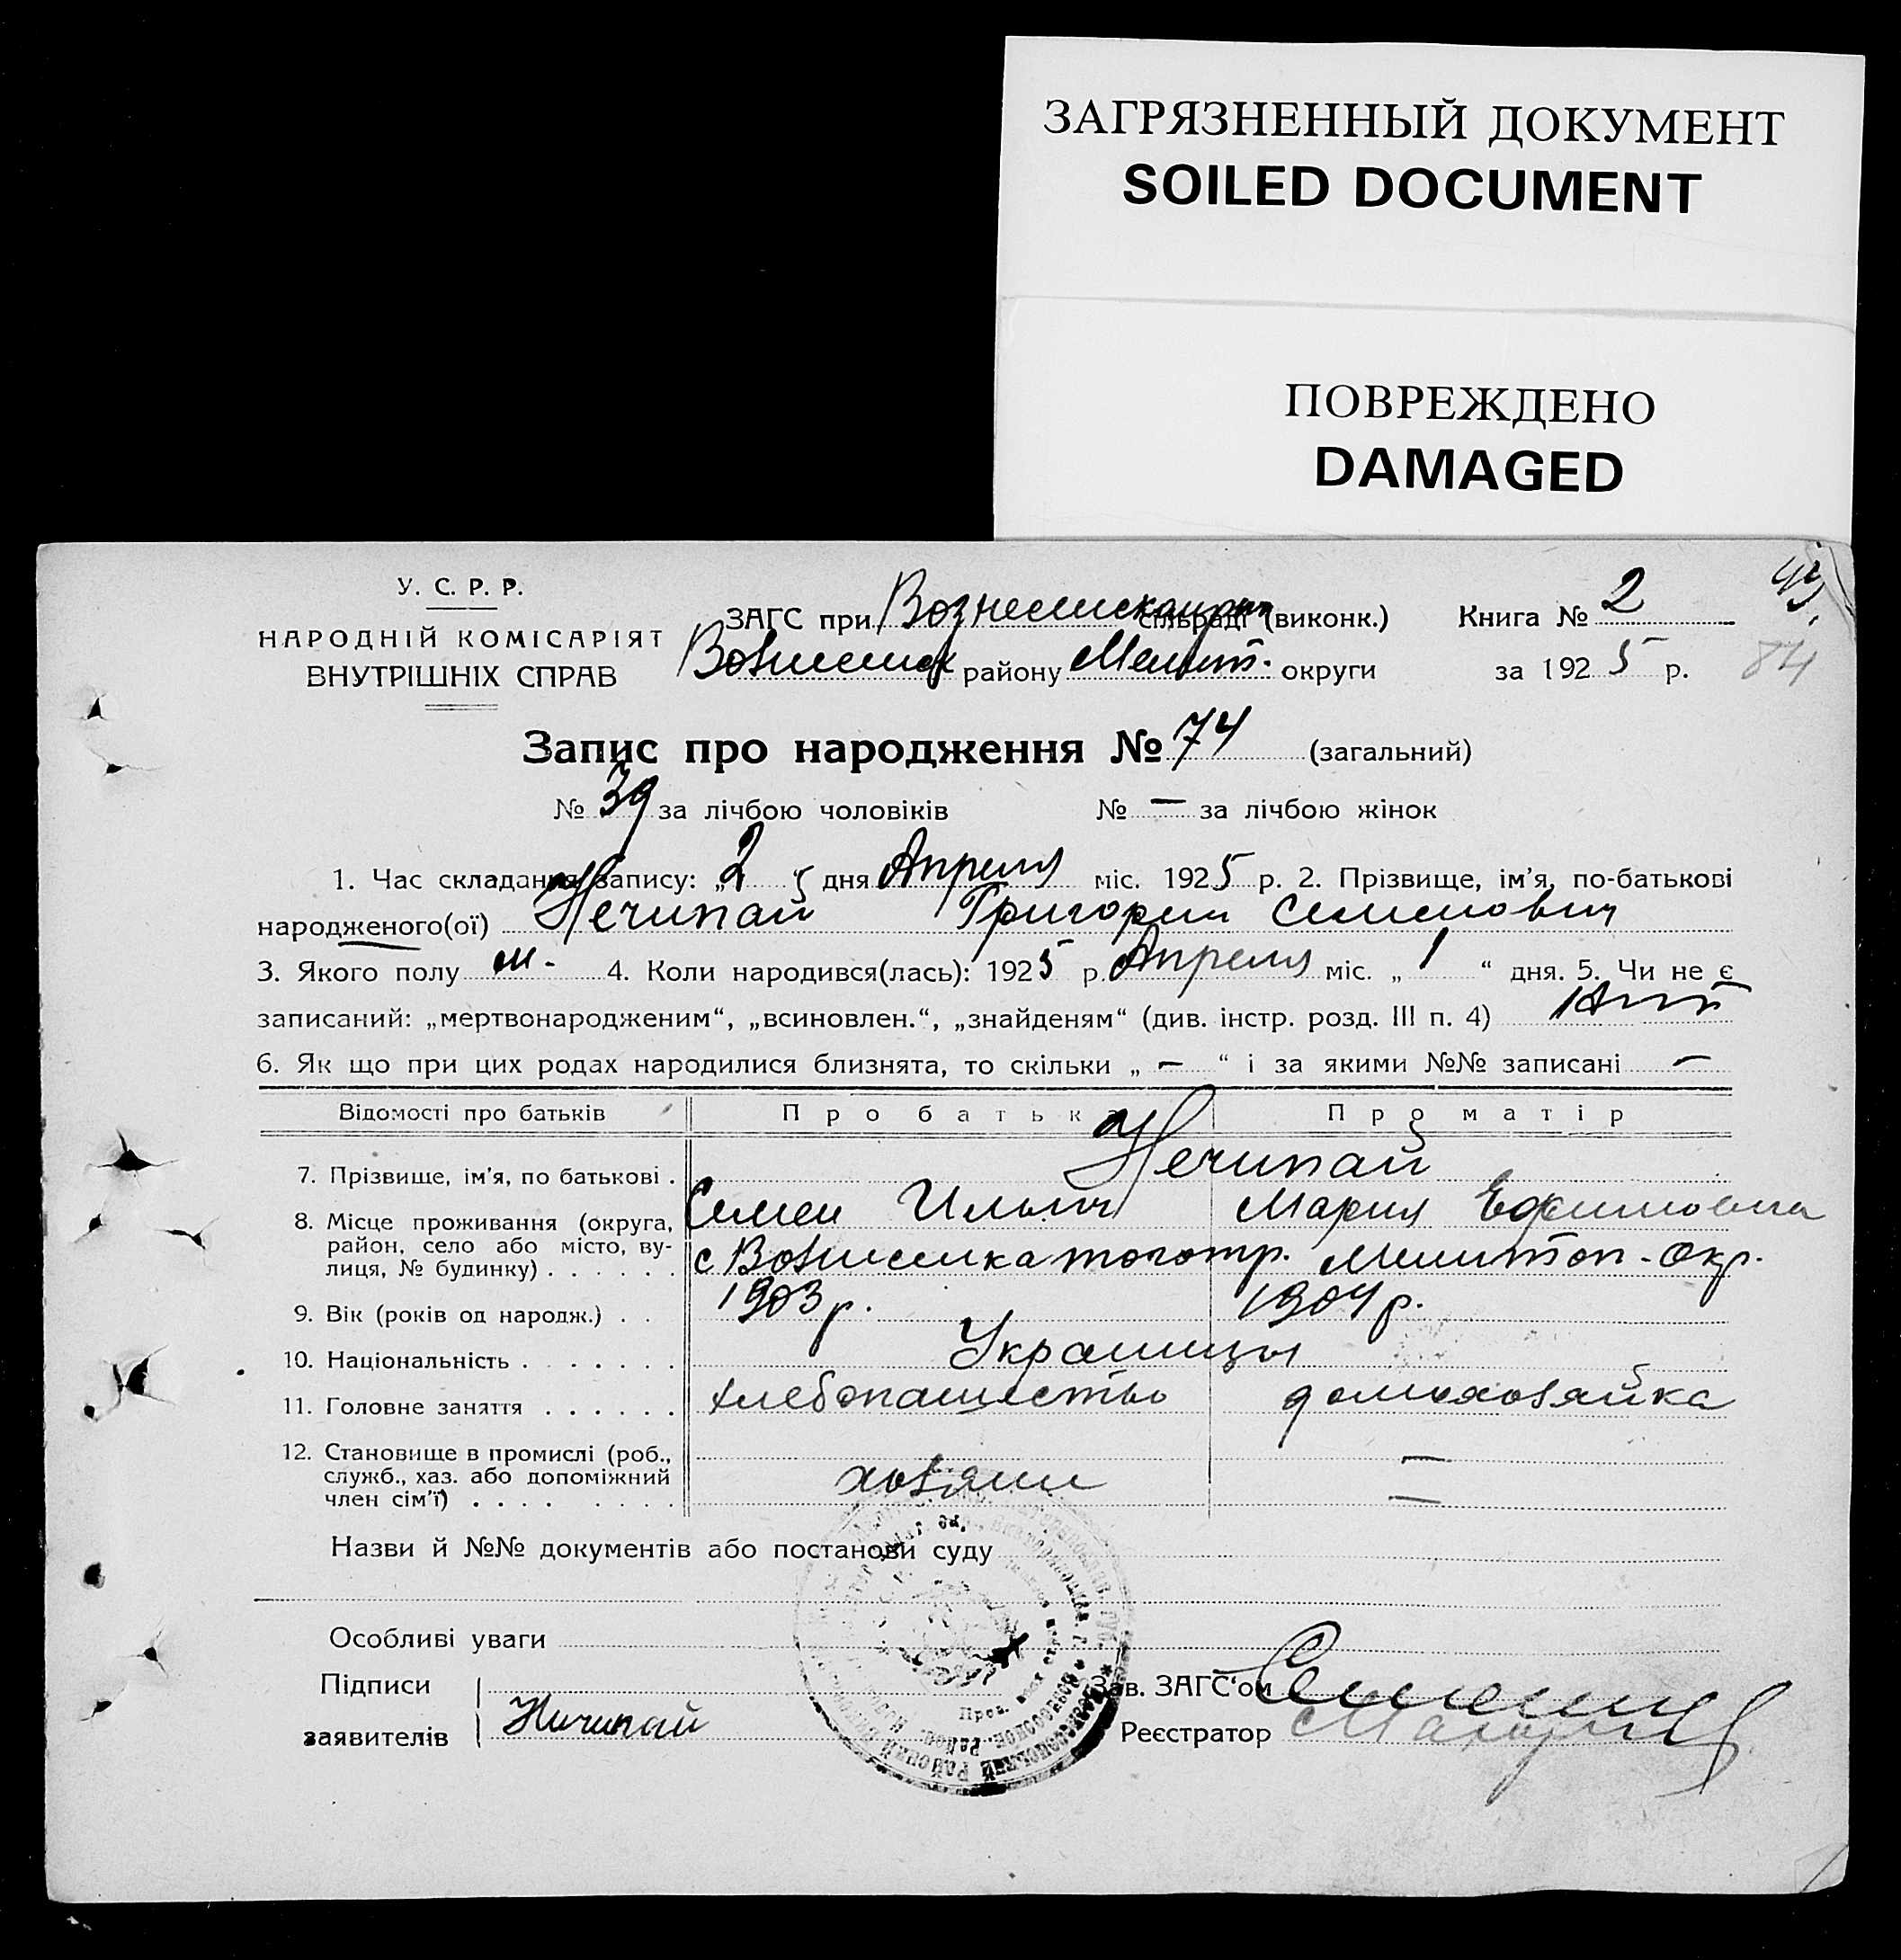 ЗАГРЯЗНЕННЫЙ ДОКУМЕНТ
SOILED DOCUMENT
ПОВРЕЖДЕНО
DAMAGED
У. С. Р. Р.
НАРОДНІЙ КОМІСАРІЯТ
ВНУТРІШНІХ СПРАВ
ЗАГС при сільраді (виконк.) Книга № 2
району Мелит. округи за 1925 р. 84
Запис про народження № 74 (загальний)
№ 39 за лічбою чоловіків № — за лічбою жінок
1. Час складання запису: „2“ дня Апреля міс. 1925 р. 2. Прізвище, ім'я, по-батькові
народженого(ої) Нечипай Григорий Семенович
3. Якого полу м. 4. Коли народився(лась): 1925 р. Апреля міс. „1“ дня. 5. Чи не є
записаний: „мертвонародженим“, „всиновлен.“, „знайденям“ (див. інстр. розд. III п. 4)
6. Як що при цих родах народилися близнята, то скільки „—“ і за якими №№ записані —
Відомості про батьків Про батька Про матір
7. Прізвище, ім'я, по батькові . Нечипай
Семен Ильич Мария Ефимовна
8. Місце проживання (округа, район, село або місто, вулиця, № будинку) . . . . . . с Вознесенка того тр. Мелитоп-Окр.
9. Вік (років од народж.) . . 1903 р. 1904 р.
10. Національність . . . . . . . Украинцы
11. Головне заняття . . . . . . хлебопашество домохозяйка
12. Становище в промислі (роб., служб., хаз. або допоміжний член сім'ї) . . . . . . . . . хозяин —
—
Назви й №№ документів або постанови суду
Особливі уваги
Підписи Зав. ЗАГС'ом
заявителів Ничипай Реєстратор